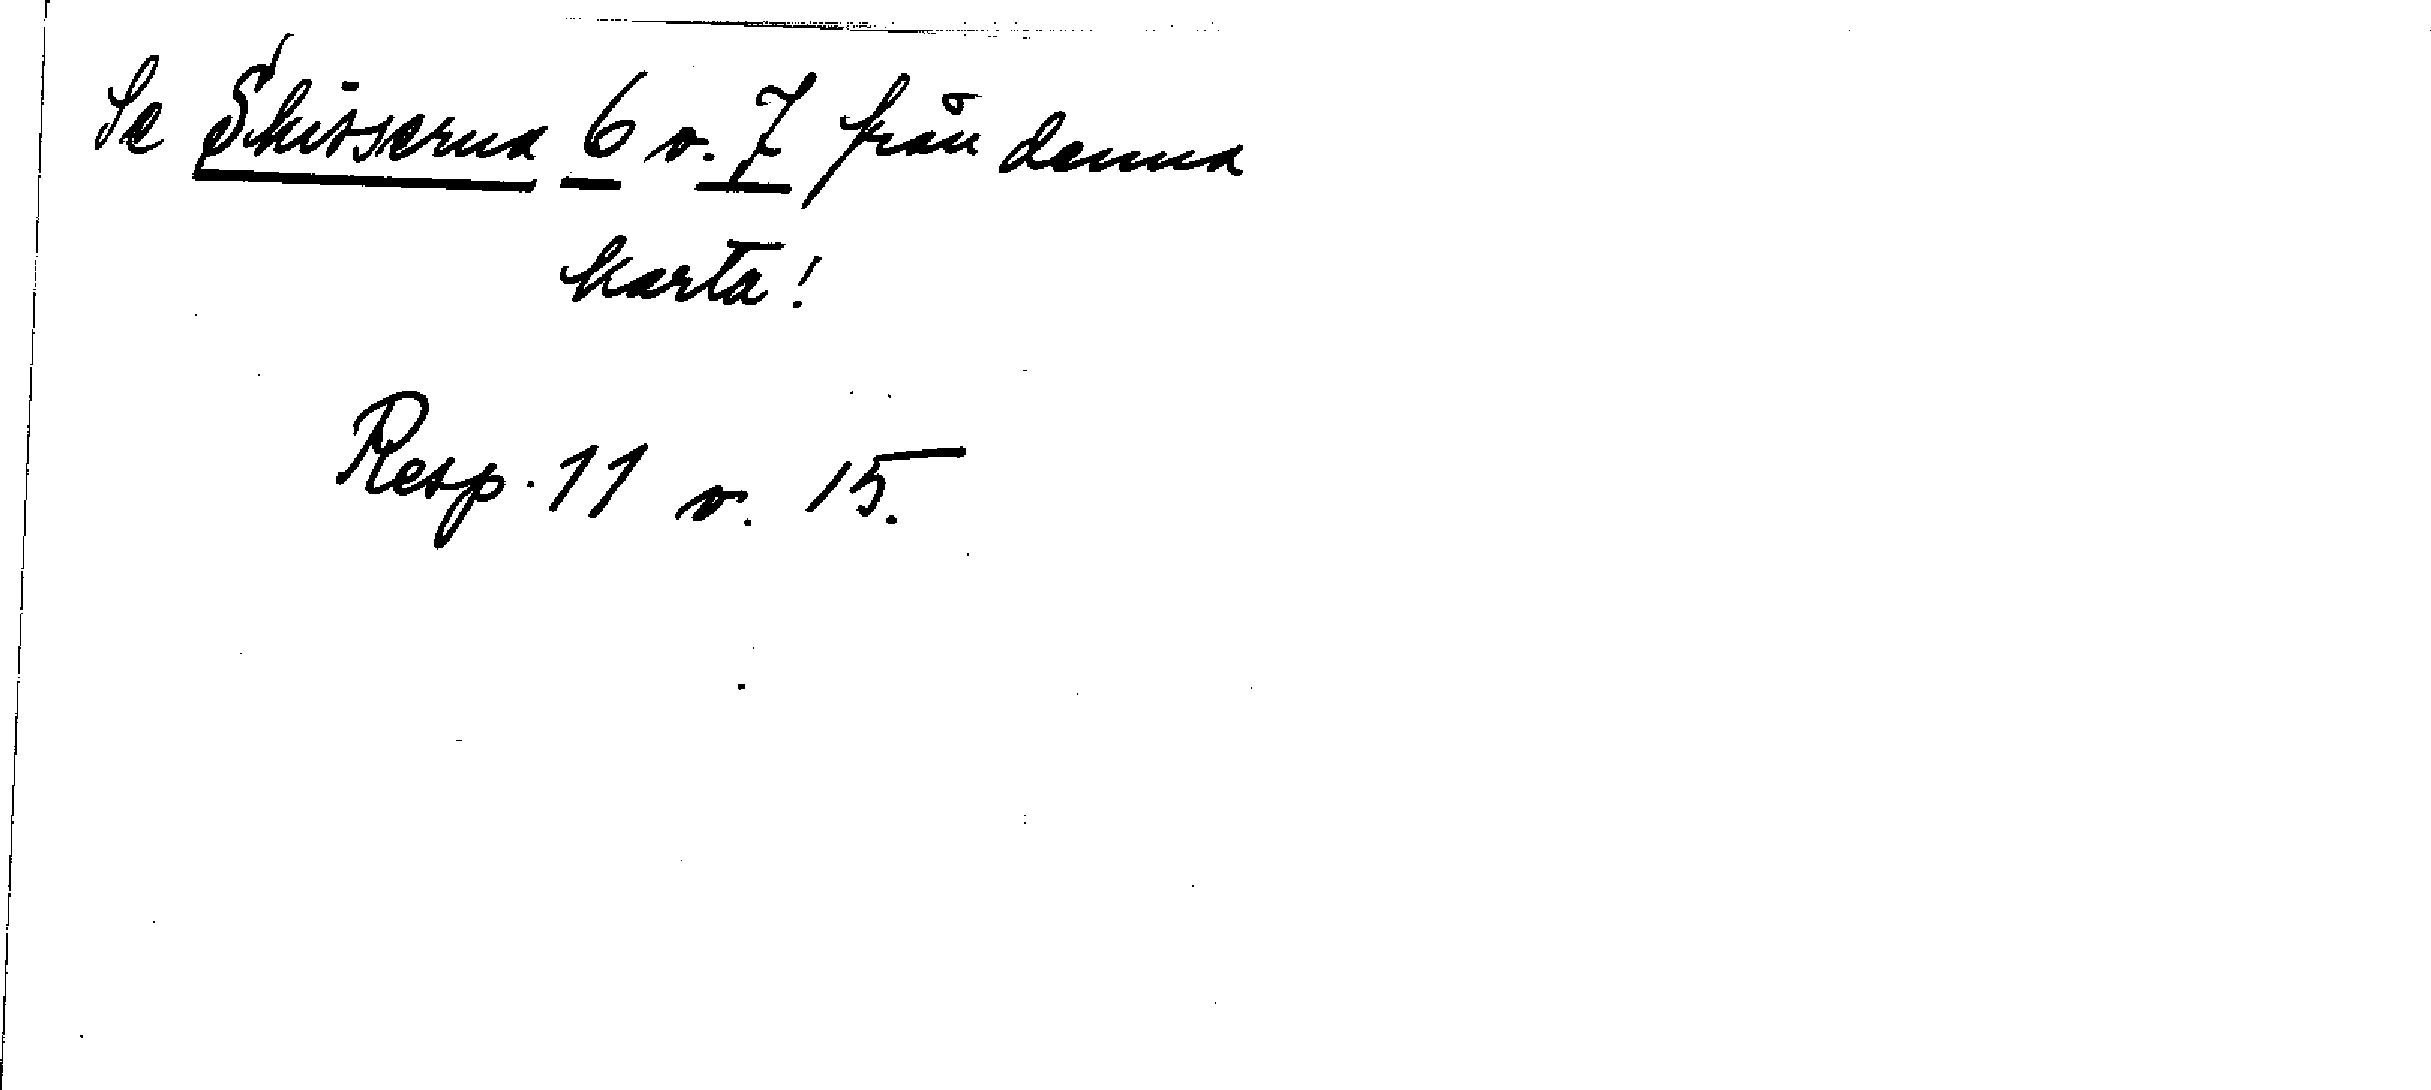 Se Skisserna 6 o. 7 från denna
karta!
Resp. 11 o. 15.